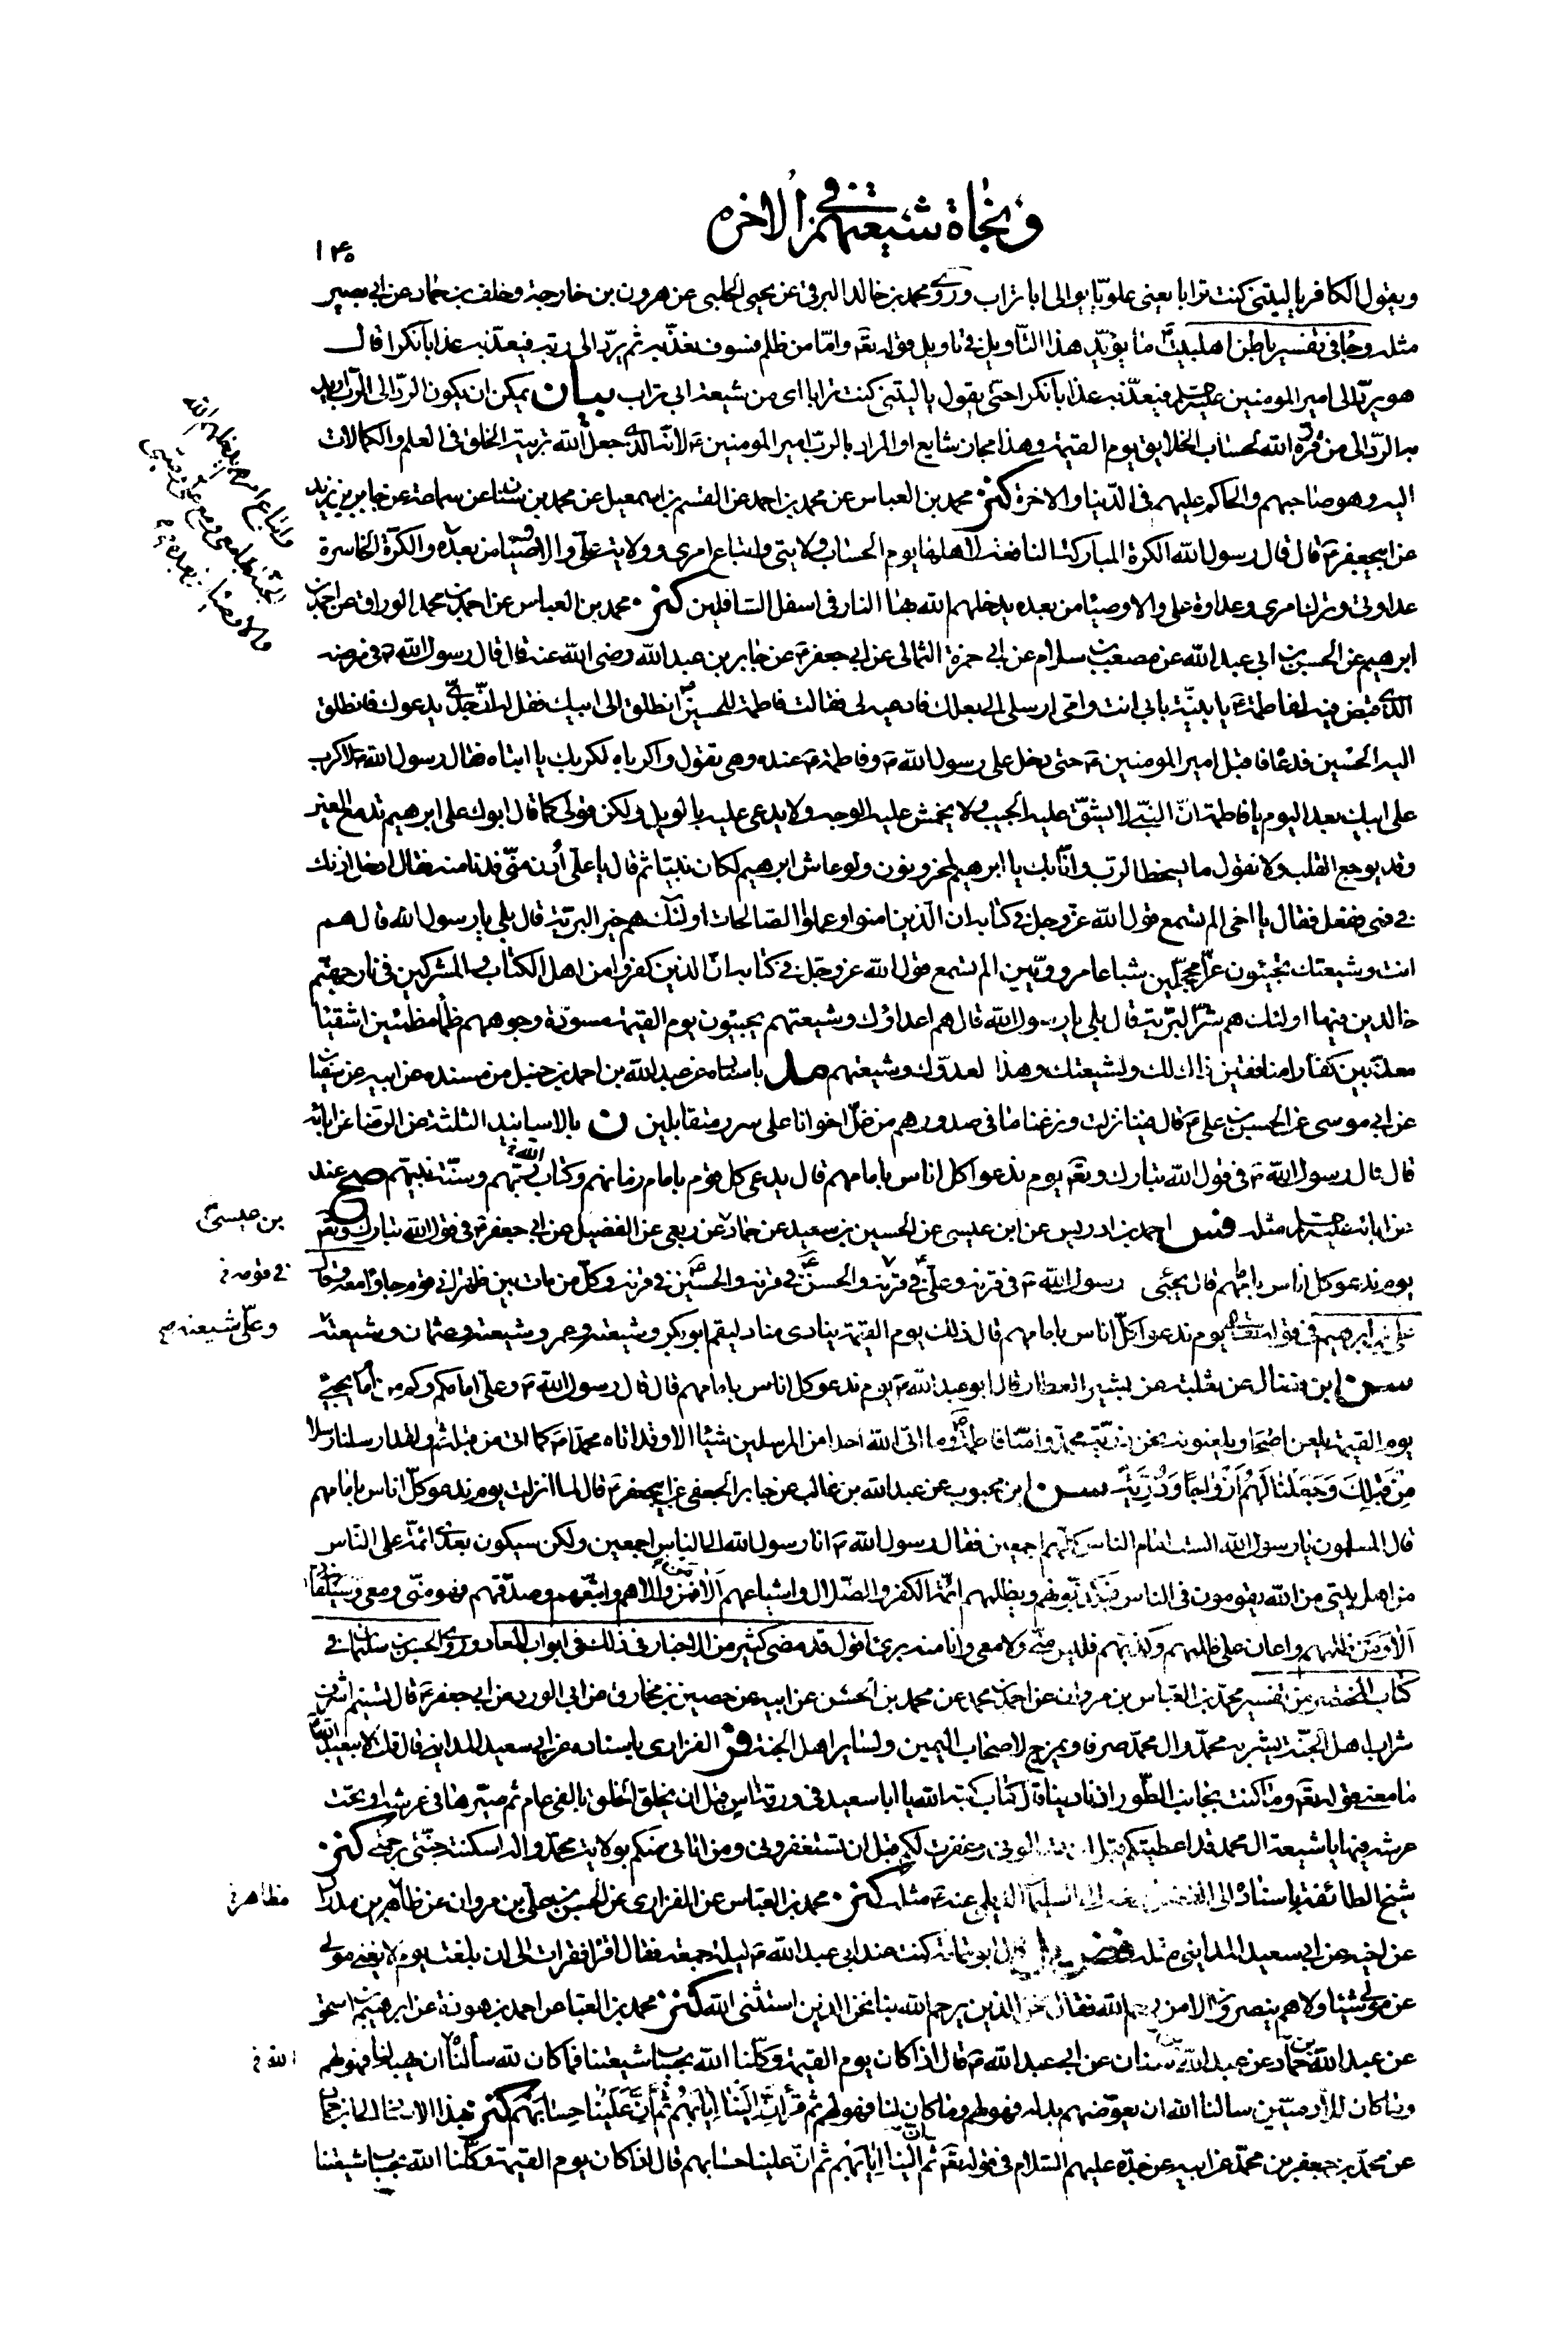 و نجاة شيعتهم في الاخره
۱۴۵
ويقول الكافر يا ليتني كنت ترابا يعني علويّا يوالى ابا تراب وروى محمد بن خالد البرقي عن يحيى الحلبي عن هرون بن خارجة وخلف بن حماد عن ابي بصير
مثله وجاء في تفسير باطن اهل البيت ما يؤيّد هذا التأويل في تاويل قوله تعه وامّا من ظلم فسوف نعذّبه ثم يردّ الى ربّه فيعذّبه عذابا نكرا قال
هو يردّ الى امير المومنين فيعذّبه عذابا نكرا حتى يقول يا ليتني كنت ترابا اى من شيعة ابي تراب بيان يمكن ان يكون الردّ الى الربّ اريد
به الردّ الى من قرّره الله لحساب الخلايق يوم القيمة وهذا مجاز شايع او المراد بالربّ امير المومنين ع لانه الذى جعل الله تربية الخلق في العلم والكمالات
اليه وهو صاحبهم والحاكم عليهم في الدّنيا والاخرة كنز محمد بن العباس عن محمد بن احمد عن القسم بن اسمعيل عن محمد بن سنان عن سماعة عن جابر بن يزيد
عن ابيجعفر ع قال قال رسول الله الكرة المباركة النافعة لاهلها يوم الحساب ولايتي واتباع امرى وولاية علىّ والاوصيا من بعده والكرة الخاسرة
عداوتي وترك امرى وعداوة على والاوصيا من بعده يدخلهم الله بها النار في اسفل السّافلين كنز محمد بن العباس عن احمد بن محمد الوراق عن احمد بن
ابرهيم عن الحسن بن ابي عبد الله عن مصعب بن سلام عن ابي حمزة الثمالى عن ابي جعفر ع عن جابر بن عبد الله رضى الله عنه قال قال رسول الله ص في مرضه
الذى قبض فيه لفاطمة ع يا بنيّة بابي انت وامّي ارسلى الى بعلك فادعيه لى فقالت فاطمة للحسن انطلق الى ابيك فقل له انّ جدّى يدعوك فانطلق
اليه الحسين فدعا فاقبل امير المومنين ع حتى دخل على رسول الله ص وفاطمة ع عنده وهي تقول واكرباه لكربك يا ابتاه فقال رسول الله ص لا كرب
على ابيك بعد اليوم يا فاطمة انّ النبيّ لا يشقّ عليه الجيب ولا يخمش عليه الوجه ولا يدعى عليه بالويل ولكن قولى كما قال ابوك على ابرهيم تدمع العين
وقد يوجع القلب ولا نقول ما يسخط الربّ وانّا بك يا ابرهيم لمحزونون ولو عاش ابرهيم لكان نبيّا ثم قال يا علىّ ادن منّي فدنا منه فقال ادخل اذنك
في فمى ففعل فقال يا اخى الم تسمع قول الله عزّ وجل في كتابه ان الّذين امنوا وعملوا الصّالحات اولئك هم خير البريّة قال بلى يا رسول الله قال هم
انت وشيعتك تجيئون غرّا محجّلين شباعا مرويّين الم تسمع قول الله عز وجل في كتابه انّ الذين كفروا من اهل الكتاب والمشركين في نار جهنّم
خالدين فيها اولئك هم شرّ البريّة قال بلى يا رسول الله قال هم اعداؤك وشيعتهم يجيئون يوم القيمة مسودّة وجوههم ظمأ مظمئين اشقيا
معذّبين كفّارا منافقين ذاك لك ولشيعتك وهذا لعدوّك وشيعتهم مد باسناده عن عبد الله بن احمد بن حنبل من مسنده عن ابيه عن سفيان
عن ابي موسى عن الحسن بن على ع قال فينا نزلت ونزعنا ما في صدورهم من غلّ اخوانا على سرر متقابلين ن بالاسانيد الثلثة عن الرضا عن ابائه
قال قال رسول الله ص في قول الله تبارك وتعه يوم ندعوا كل اناس بامامهم قال يدعى كل قوم بامام زمانهم وكتاب ربّهم وسنّة نبيّهم صح عند
عن ابائه مثله فس احمد بن ادريس عن ابن عيسى عن الحسين بن سعيد عن حماد عن ربعى عن الفضيل عن ابي جعفر ع في قول الله تبارك وتعه
بن عيسى
يوم ندعو كل اناس بامامهم قال يجئ رسول الله ص في قرنه وعلىّ في قرنه والحسن في قرنه والحسين في قرنه وكلّ من مات بين ظهراني قوم جاؤا معه وقال
في قومه
على بن ابرهيم في قوله تعه يوم ندعوا كلّ اناس بامامهم قال ذلك يوم القيمة ينادى مناد ليقم ابو بكر وشيعته وعمر وشيعته وعثمان وشيعته
وعلىّ وشيعته
سن ابن فضال عن ثعلبة عن بشير العطار قال ابو عبد الله ع يوم ندعو كل اناس بامامهم قال قال رسول الله ص وعلىّ امامكم وكم من امام يجئ
يوم القيمة يلعن اصحابه ويلعنونه نحن ذريّة محمد وامّنا فاطمة وما اتى الله احدا من المرسلين شيئا الا وقد اتاه محمدا ص كما اتى من قبله ثم تلا ولقد ارسلنا رسلا
مِن قَبْلِكَ وَجَعَلْنَا لَهُم أَزْوَاجًا وَذُرِّيَّة سن ابن محبوب عن عبد الله بن غالب عن جابر الجعفى عن ابيجعفر ع قال لما انزلت يوم ندعو كلّ اناس بامامهم
قال المسلمون يا رسول الله الست امام الناس كلّهم اجمعين فقال رسول الله ص انا رسول الله الى الناس اجمعين ولكن سيكون بعدى ائمّة على النّاس
من اهل بيتى من الله يقومون في الناس فيكذّبونهم ويظلمهم ائمّة الكفر والضّلال واشياعهم الا فمن والاهم واتبّعهم وصدّقهم فهو منّى ومعى وسيلقانى
الا ومن ظلمهم واعان على ظلمهم وكذّبهم فليس منّى ولا معى وانا منه برئ اقول قد مضى كثير من الاخبار في ذلك في ابواب المعاد وروى الحسن بن سليمان في
كتاب المحتضر من تفسير محمد بن العباس بن مروان عن احمد بن محمد عن محمد بن الحسن عن ابيه عن حصين بن مخارق عن ابي الورد عن ابي جعفر ع قال تسنيم اشرف
شراب اهل الجنّة يشربه محمّد وال محمّد صرفا ويمزج لاصحاب اليمين ولساير اهل الجنة فر الفزارى باسناده عن ابي سعيد المداينى قال قلت لابيعبد الله ع
ما معنى قوله تعه وما كنت بجانب الطّور اذ نادينا قال كتاب كتبه الله يا ابا سعيد في ورقة اس قبل ان يخلق الخلق بالفى عام ثم صيّرها في عرشه او تحت
عرشه فيها يا شيعة ال محمد قد اعطيتكم قبل ان تسالونى وغفرت لكم قبل ان تستغفرونى ومن اتانى منكم بولاية محمّد واله اسكنته جنّتى برحمتى كنز
شيخ الطائفة باسناده الى الفضل الى سليمان الديلمى عنه ع مثله كنز محمد بن العباس عن الفزارى عن الحسن بن على بن مروان عن طاهر بن مدرار
مظاهر
عن اخيه عن ابي سعيد المداينى مثله كنت عند ابي عبد الله ع ليلة جمعة فقال اقرأ فقرات الى ان بلغت يوم لا يغنى مولى
عن مولى شيئا ولا هم ينصرون الا من رحم الله فقال نحن الذين يرحم الله بنا نحن الذين استثنى الله كنز محمد بن العباس عن احمد بن هوذة عن ابرهيم بن اسحق
عن عبد الله بن حماد عن عبد الله بن سنان عن ابي عبد الله ع قال اذا كان يوم القيمة وكلنا الله بحساب شيعتنا فما كان لله سألنا ان يهبه لنا فهو لهم
الله
وما كان للادميّين سالنا الله ان يعوّضهم بدله فهو لهم وما كان لنا فهو لهم ثم قرأ انّ الينا ايابهم ثم انّ علينا حسابهم كنز بهذا الاسناد الى ابن حماد
عن محمّد بن جعفر بن محمّد عن ابيه عن جدّه عليهم السّلام في قوله تعه انّ الينا ايابهم ثم انّ علينا حسابهم قال اذا كان يوم القيمة وكّلنا الله بحساب شيعتنا